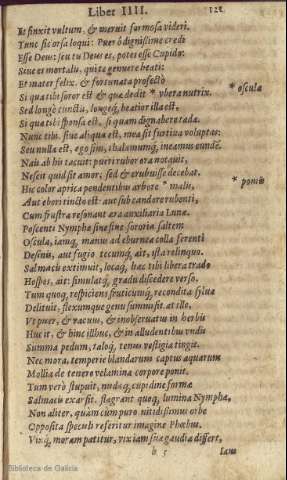 Liber IIII. 121
Et finxit vultum, & meruit formosa videri.
Tunc sic orsa loqui: Puer ô dignissime credi
Esse Deus: seu tu Deus es, potes esse Cupido:
Siue es mortalis, qui te genuere beati:
Et mater felix, & fortunata profectò
Si qua tibi soror est & quæ dedit * vbera nutrix. * oscula
Sed longè cunctis, longéq; beatior illa est,
Si qua tibi sponsa est, si quam dignabere tæda.
Hæc tibi, siue aliqua est, mea sit furtiua voluptas:
Seu nulla est, ego sim, thalamumq́; ineamus eundẽ.
Nais ab his tacuit: pueri rubor ora notauit,
Nescit quid sit amor, sed & erubuisse decebat.
Hic color aprica pendentibus arbore * malis, * pomis
Aut ebori tincto est: aut sub candore rubenti,
Cum frustra resonant æra auxiliaria Lunæ.
Poscenti Nymphæ sine fine sororia saltem
Oscula, iamq́; manus ad eburnea colla ferenti
Desinis, aut fugio tecumq́; ait, ista relinquo.
Salmacis extimuit, locaq́; hæc tibi libera trado
Hospes, ait: simulatq́; gradu discedere verso.
Tum quoq; respiciens fruticumq́; recondita sylua
Delituit, flexumque genu summisit. at ille,
Vt puer, & vacuis, & inobseruatus in herbis
Huc it, & hinc illuc, & in alludentibus vndis
Summa pedum, taloq́; tenus vestigia tingit.
Nec mora, temperie blandarum captus aquarum
Mollia de tenero velamina corpore ponit.
Tum verò stupuit, nudæq; cupidine formæ
Salmacis exarsit. flagrant quoq; lumina Nymphæ,
Non aliter, quàm cum puro nitidissimus orbe
Opposita speculi referitur imagine Phœbus.
Vixq́; moram patitur, vix iam sua gaudia differt,
h 5 Iam
Biblioteca de Galicia